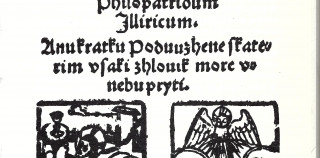 Philopatridum
Illiricum.
Anu kratku Poduuzhene skate-
rim vsaki zhlouik more ve
nebu pryti.